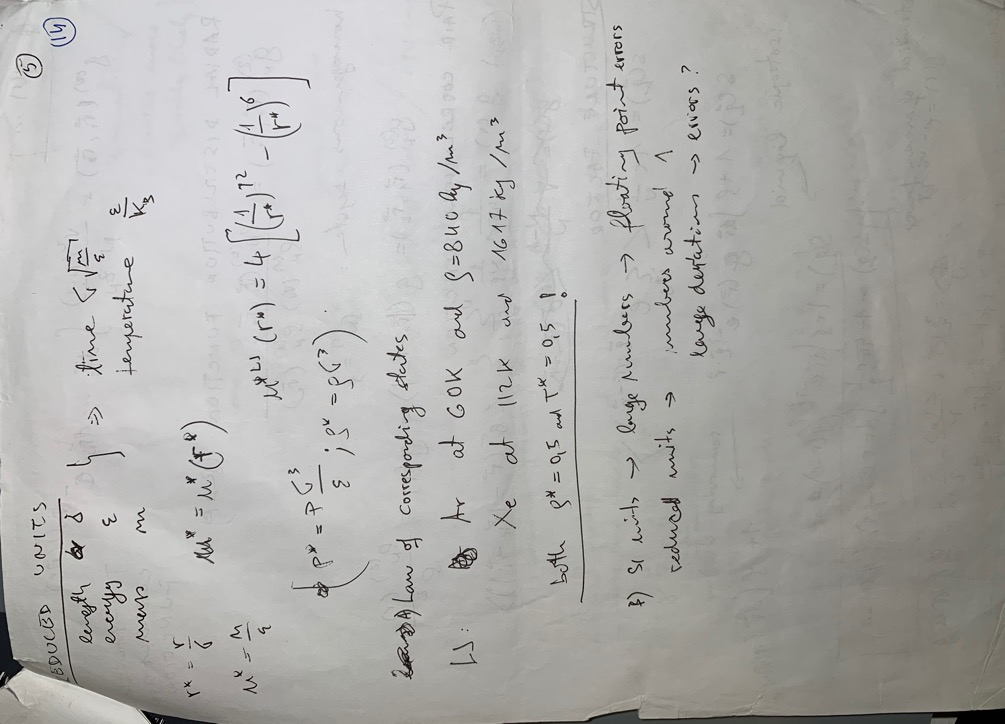 ⑤ ⑭
REDUCED UNITS
length σ
energy ε
mass m
} => time σ√(m/ε)
temperature ε/K_B
r* = r/σ
u* = u/ε
u* = u*(r*)
u*^LJ (r*) = 4 [ (1/r*)^12 - (1/r*)^6 ]
( p* = pσ^3/ε ; ρ* = ρσ^3 )
A) Law of corresponding states
LJ: Ar at 60K and ρ=840 kg/m^3
Xe at 112K and 1617 kg/m^3
both ρ* = 0,5 and T* = 0,5 !
SI units → large numbers → floating point errors
reduced units → numbers around 1
large deviations → errors?